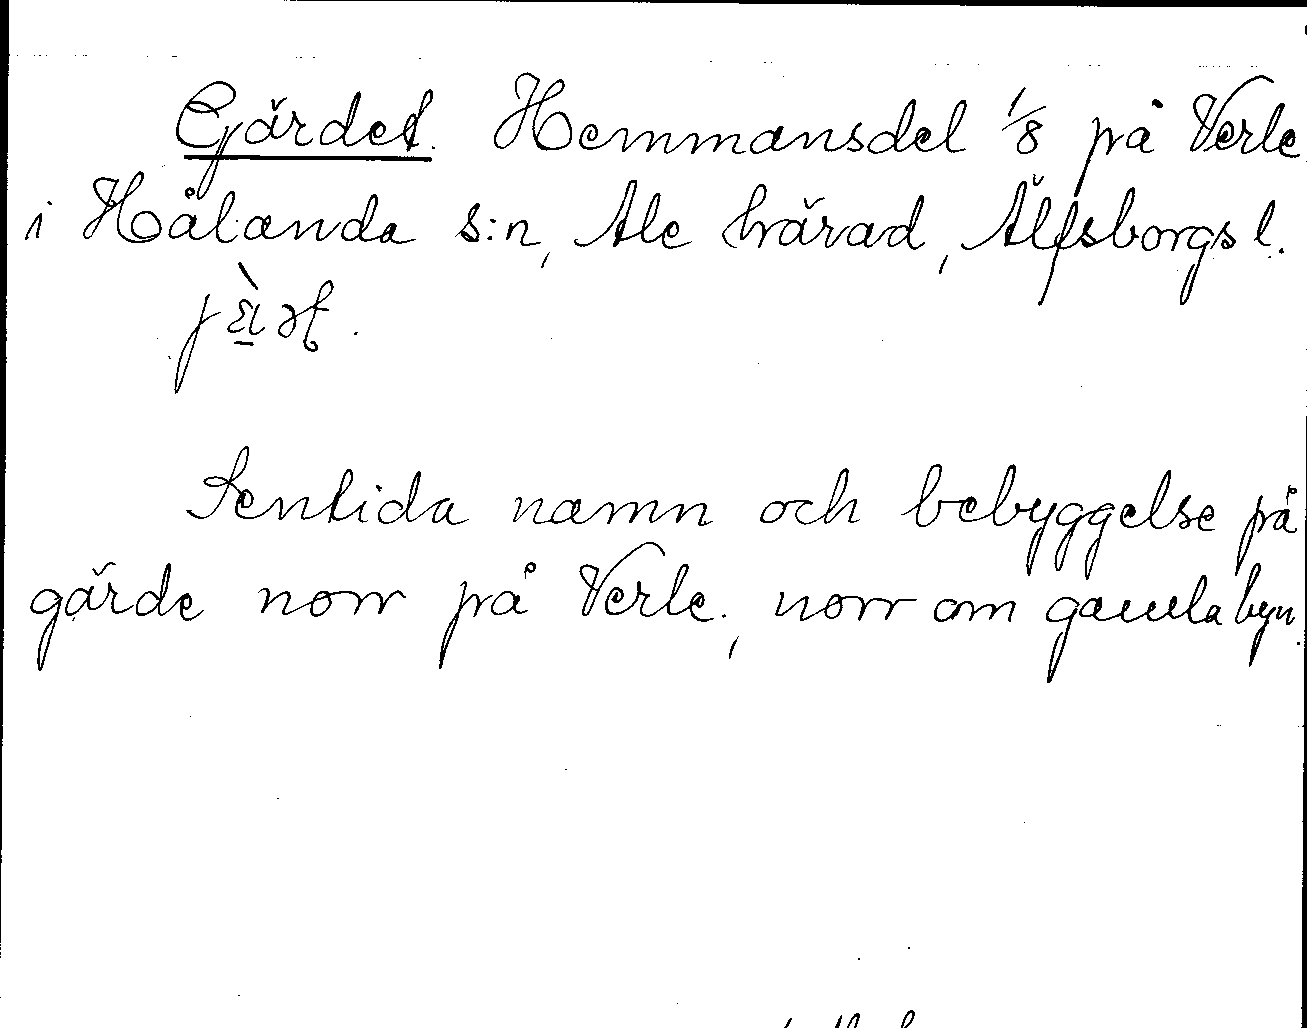 Gärdet. Hemmansdel 1/8 på Verle
i Hålanda s:n, Ale härad, Älfsborgs l.
Sentida namn och bebyggelse på
gärde norr på Verle, norr om gamla byn.